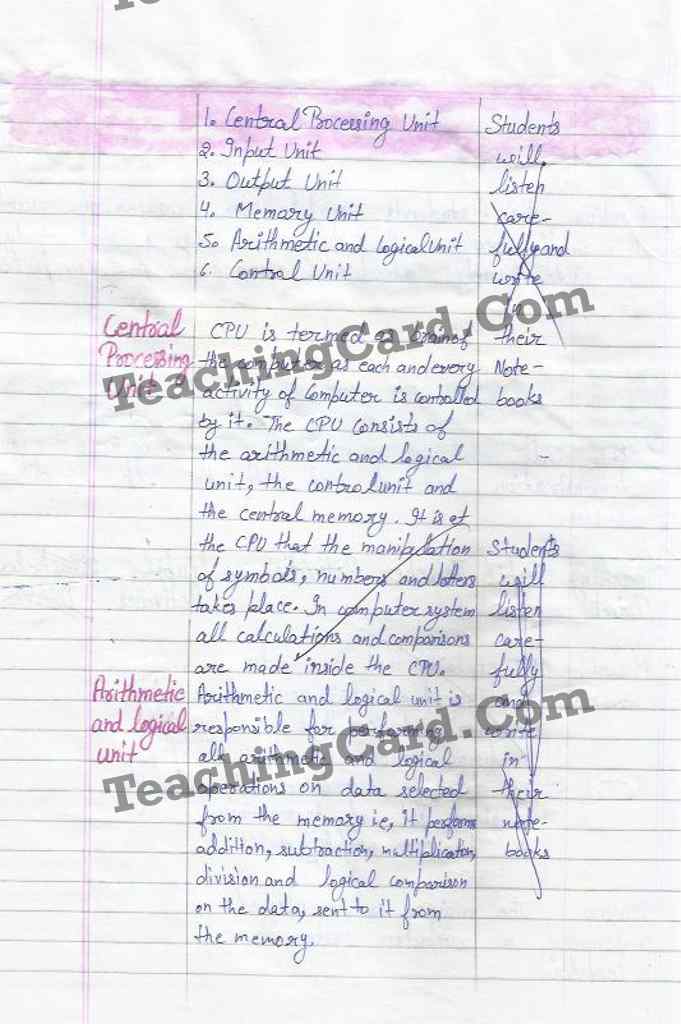 1. Central Processing Unit
2. Input Unit
3. Output Unit
4. Memory Unit
5. Arithmetic and Logical Unit
6. Control Unit
Students
will
listen
care-
fully and
write
in
their
Note-
books
Central
Processing
Unit
CPU is termed as brain of
the computer as each and every
activity of Computer is controlled
by it. The CPU consists of
the arithmetic and logical
unit, the control unit and
the central memory. It is at
the CPU that the manipulation
of symbols, numbers and letters
takes place. In computer system
all calculations and comparisons
are made inside the CPU.
Students
will
listen
care-
fully
and
write
in
their
note-
books
Arithmetic
and Logical
unit
Arithmetic and logical unit is
responsible for performing
all arithmetic and logical
operations on data selected
from the memory ie, it performs
addition, subtraction, multiplication,
division and logical comparison
on the data, sent to it from
the memory.
TeachingCard.Com
TeachingCard.Com